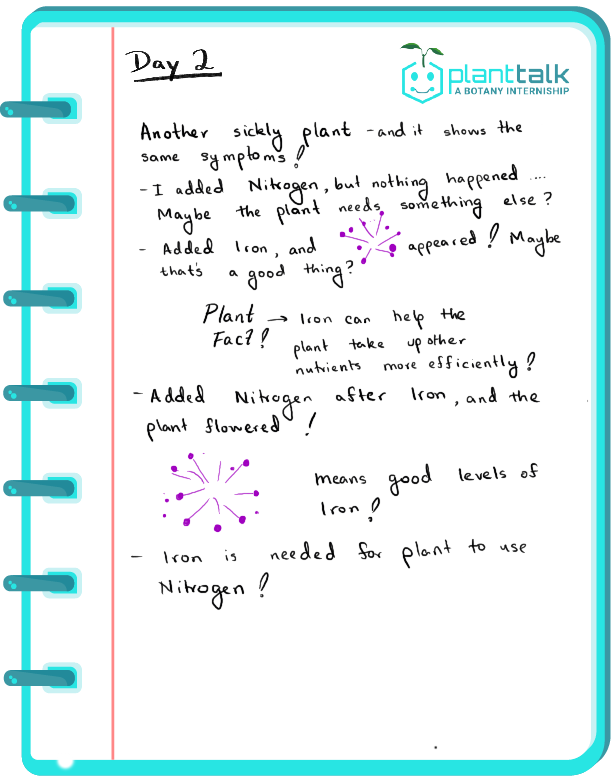 Day 2
planttalk
A BOTANY INTERNISHIP
Another sickly plant - and it shows the
same symptoms!
- I added Nitrogen, but nothing happened ....
Maybe the plant needs something else?
- Added Iron, and appeared! Maybe
that's a good thing?
Plant → Iron can help the
Fact! plant take up other
nutrients more efficiently!
- Added Nitrogen after Iron, and the
plant flowered!
means good levels of
Iron!
- Iron is needed for plant to use
Nitrogen!